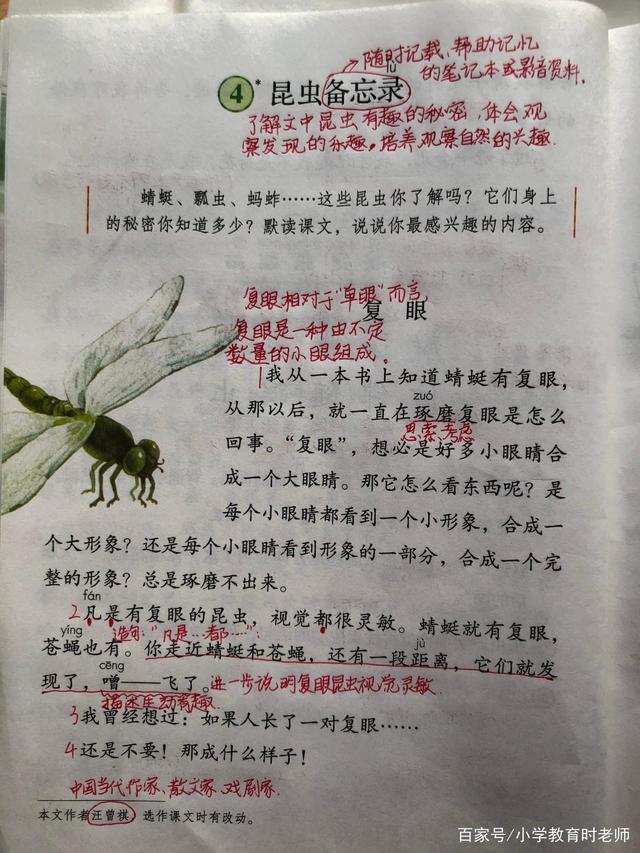 随时记载、帮助记忆
的笔记本或影音资料.
lù
4* 昆虫备忘录
了解文中昆虫有趣的秘密,体会观
察发现的乐趣。培养观察自然的兴趣.
蜻蜓、瓢虫、蚂蚱……这些昆虫你了解吗？它们身上
的秘密你知道多少？默读课文，说说你最感兴趣的内容。
复眼相对于"单眼"而言,
复 眼
复眼是一种由不定
数量的小眼组成.
1我从一本书上知道蜻蜓有复眼，
zuó
从那以后，就一直在琢磨复眼是怎么
思索、考虑
回事。“复眼”，想必是好多小眼睛合
成一个大眼睛。那它怎么看东西呢？是
每个小眼睛都看到一个小形象，合成一
个大形象？还是每个小眼睛看到形象的一部分，合成一个完
整的形象？总是琢磨不出来。
fán
2凡是有复眼的昆虫，视觉都很灵敏。蜻蜓就有复眼，
yíng 造句:"凡是…都……": jù
苍蝇也有。你走近蜻蜓和苍蝇，还有一段距离，它们就发
cēng
现了，噌——飞了。进一步说明复眼昆虫视觉灵敏.
描述生动有趣.
3我曾经想过：如果人长了一对复眼……
4还是不要！那成什么样子！
中国当代作家、散文家、戏剧家.
本文作者汪曾祺，选作课文时有改动。
百家号/小学教育时老师